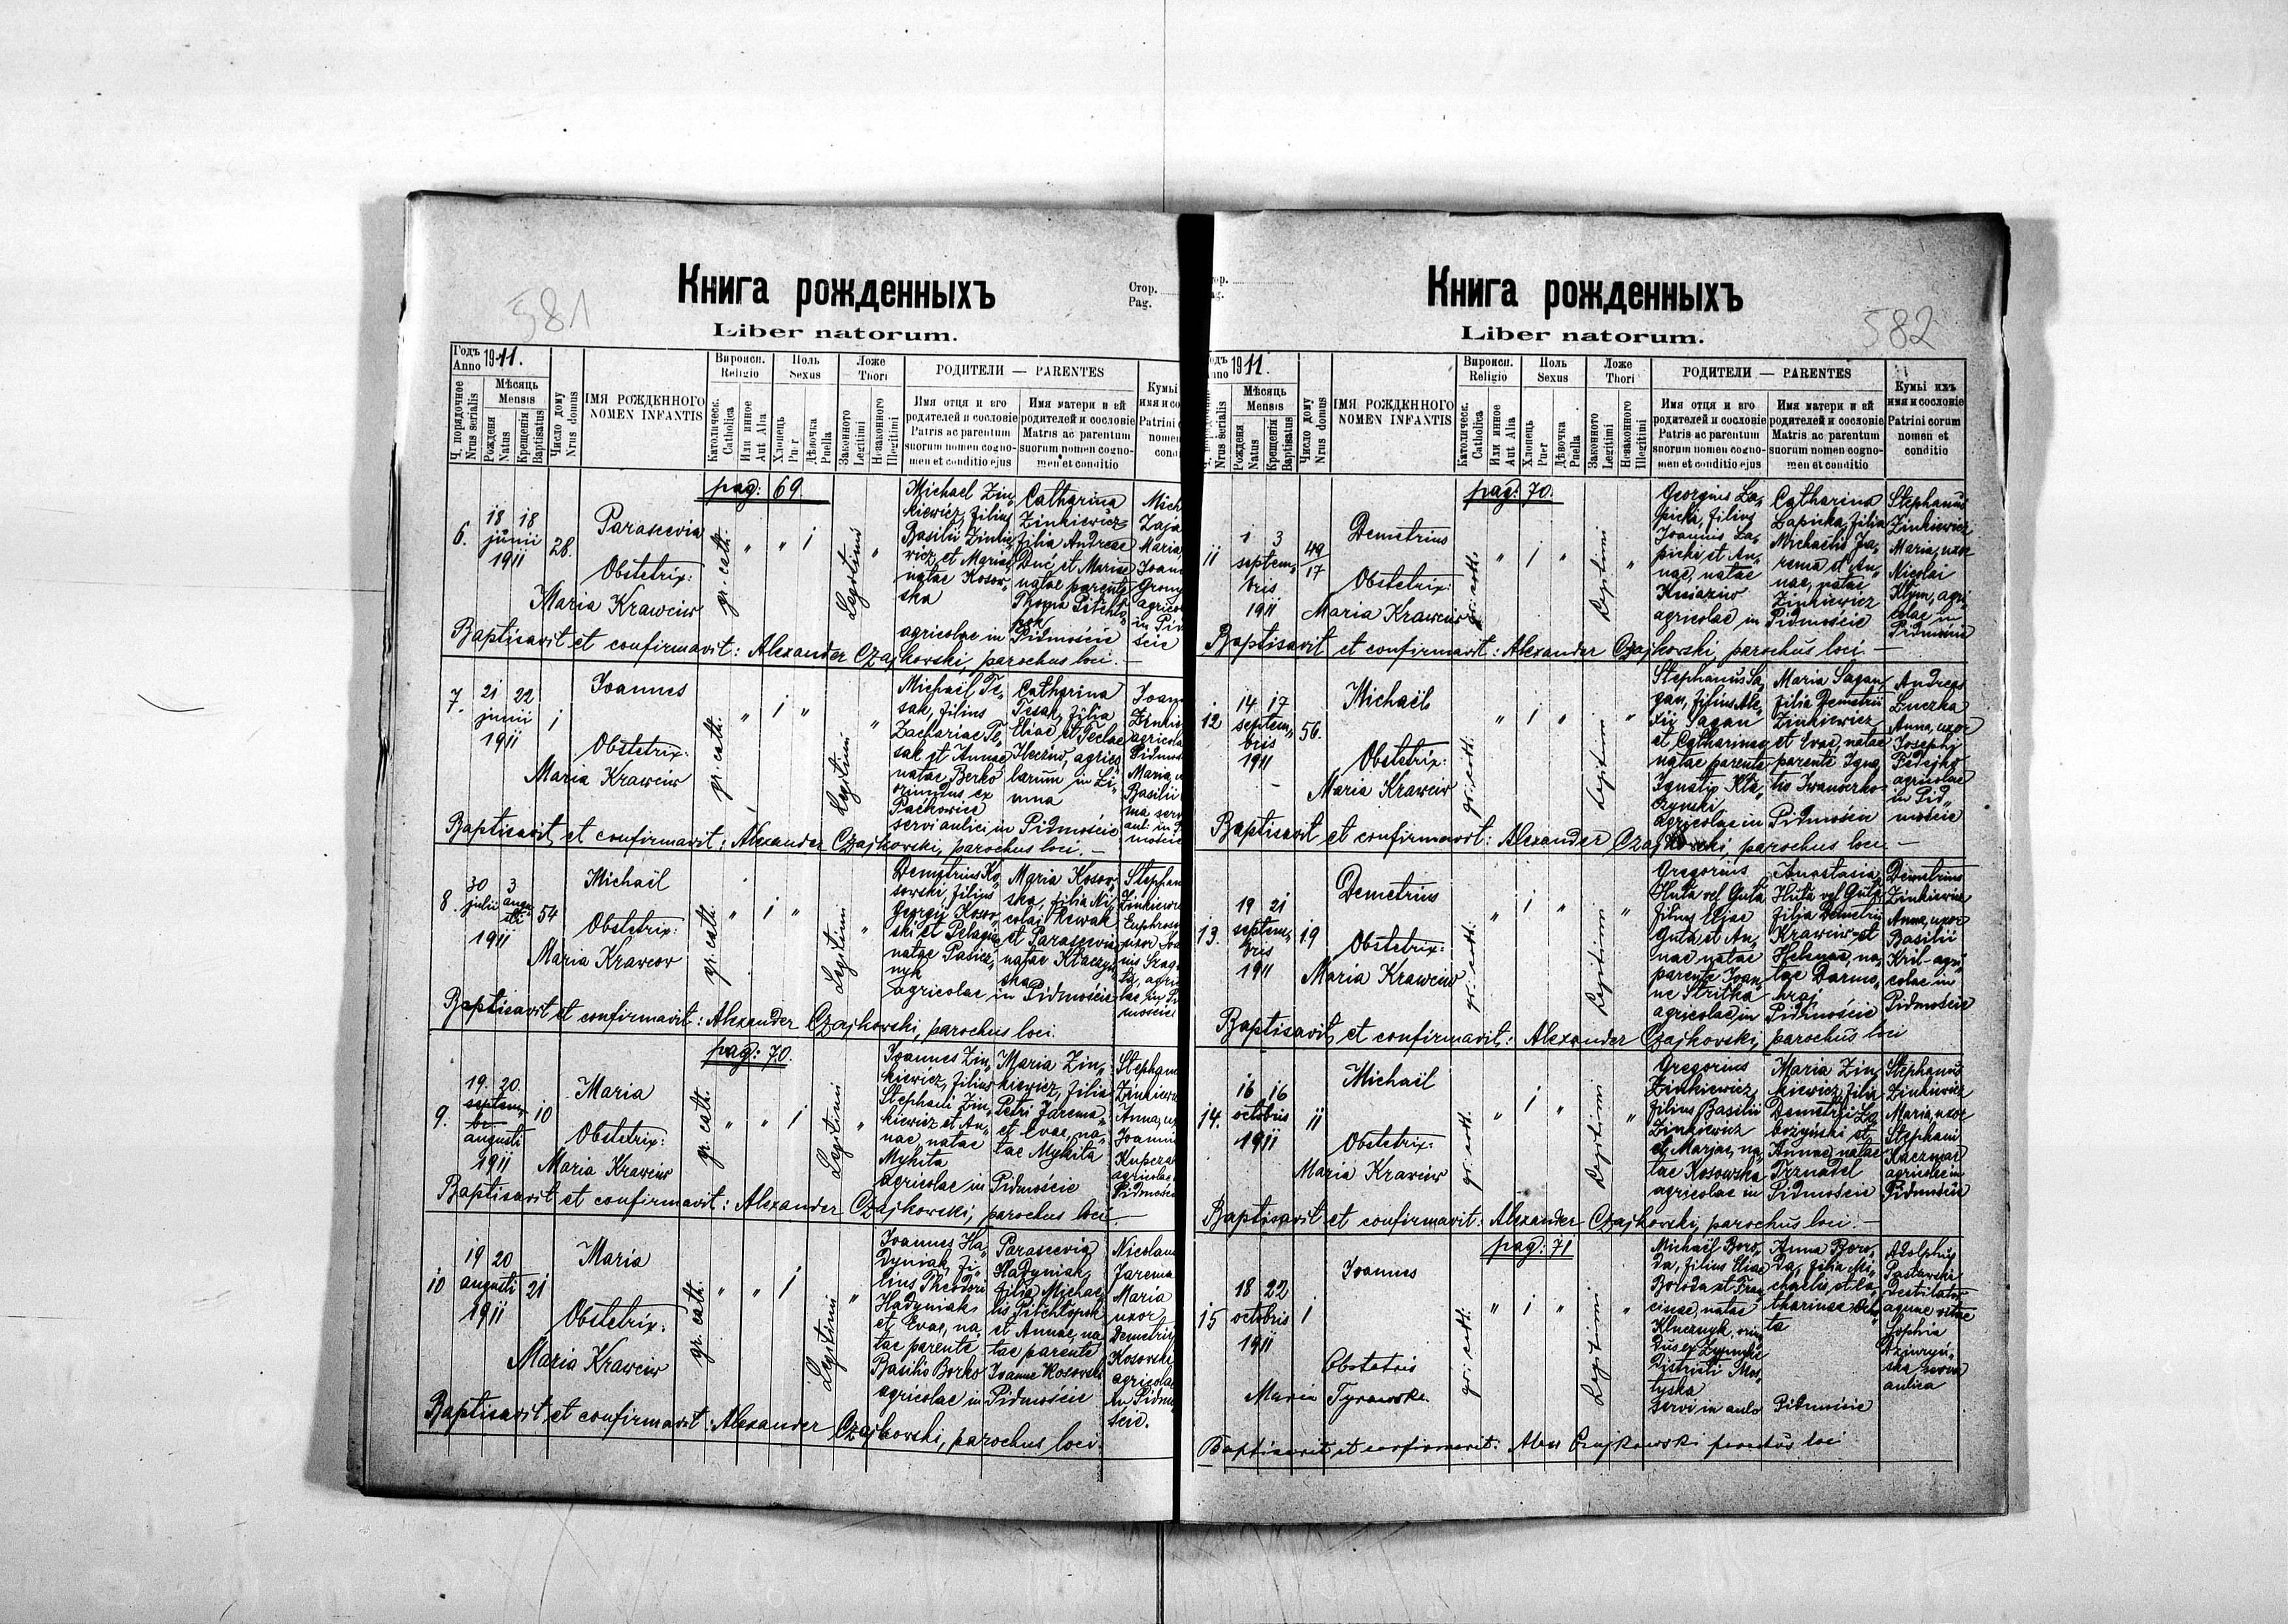 581
Книга рожденныхъ
Стор.
Pag.
Liber natorum.
Годъ
Anno 1911.
Ч. порядочное
Nrus serialis
Мѣсяць
Mensis
Рожденя
Natus
Крещенія
Baptisatus
Число дому
Nrus domus
ІМЯ РОЖДЕННОГО
NOMEN INFANTIS
Вироисп.
Religio
Католическ.
Catholica
Или инное
Aut Alia
Поль
Sexus
Хлопець
Puer
Дѣвочка
Puella
Ложе
Thori
Законного
Legitimi
Незаконного
Illegitimi
РОДИТЕЛИ — PARENTES
Имя отця и его
родителей и сословіе
Patris ac parentum
suorum nomen cogno-
men et conditio ejus
Имя матери и ей
родителей и сословіе
Matris ac parentum
suorum nomen cogno-
men et conditio
Кумы
имя и со
Patrini
nomen
cond
pag: 69.
6.
18 18
junii
1911
28.
Parascevia
Obstetrix:
Maria Krawciw
gr. cath.
" " 1
Legitimi
"
Michael Zin
kiewicz, filius
Basilii Zinkie
wicz, et Mariae
natae Kosow
ska
agricolae in
Catharina
Zinkiewicz
filia Andreae
Duć, et Mariae
natae parente
Pidmoście
Mich
Zaja
Maria,
Joan
agrico
in Pid
ście
Baptisavit et confirmavit: Alexander Czajkowski, parochus loci. —
7.
21 22
junii
1911
1
Joannes
Obstetrix:
Maria Krawciw
gr. cath.
" 1 "
Legitimi
"
Michaël Te
sak, filius
Zachariae Te
sak et Annae
natae Berko
oriundus ex
Packowice
servi aulici in Pidmoście
Catharina
Tesak, filia
Eliae et Teclae
Hoczko, agrico
larum in Li
Joan
Zinkie
agricola
Pidmoś
Maria, u
Basilii
Baptisavit et confirmavit: Alexander Czajkowski, parochus loci. —
8.
30 3
julii augu
sti
1911
54
Michaël
Obstetrix:
Maria Krawcow
gr. cath.
" 1 "
Legitimi
"
Demetrius Ko
sowski, filius
Georgij Kosow
ski et Pelagiae
natae Pasicz
nyk
agricolae in Pidmoście
Maria Kosow
ska, filia Ni
colai Kowak
et Parascevia
natae Kłaczyń
ska
Stephan
Zinkiewic
Euphrosi
uxor Joa
agrico
lae in Pi
moście
Baptisavit et confirmavit: Alexander Czajkowski, parochus loci.
pag: 70.
9.
19. 20.
augusti
1911
10
Maria
Obstetrix:
Maria Krawciw
gr. cath.
" " 1
Legitimi
"
Joannes Zin
kiewicz, filius
Stephani Zin
kiewicz et An
nae, natae
Mykita
agricolae in Pidmoście
Maria Zin
kiewicz, filia
Petri Jarema
et Evae, na
tae Mykita
Stephan
Zinkiew
Anna, ux
Joannis
Kupcza
agricolae
Pidmoście
Baptisavit et confirmavit: Alexander Czajkowski, parochus loci.
10
19 20
augusti
1911
21
Maria
Obstetrix:
Maria Krawciw
gr. cath.
" " 1
Legitimi
"
Joannes Ha
dyniak, fi
lius Theodori
Hadyniak
et Evae, na
tae parente
Basilio Borko
agricolae in Pidmoście
Parascevia
Hadyniak
filia Michae
lis
et Annae, na
tae parente
Joanne Kosowski
Nicolaus
Jarema
Maria
uxor
Demetrii
Kosowski
agricolae
in Pidmo
ście.
Baptisavit et confirmavit: Alexander Czajkowski, parochus loci.
582
Книга рожденныхъ
Liber natorum.
1911.
Мѣсяць
Mensis
Nrus serialis
Рожденя
Natus
Крещенія
Baptisatus
Число дому
Nrus domus
ІМЯ РОЖДЕННОГО
NOMEN INFANTIS
Вироисп.
Religio
Католическ.
Catholica
Или инное
Aut Alia
Поль
Sexus
Хлопець
Puer
Дѣвочка
Puella
Ложе
Thori
Законного
Legitimi
Незаконного
Illegitimi
РОДИТЕЛИ — PARENTES
Имя отця и его
родителей и сословіе
Patris ac parentum
suorum nomen cogno-
men et conditio ejus
Имя матери и ей
родителей и сословіе
Matris ac parentum
suorum nomen cogno-
men et conditio
Кумы ихъ
имя и сословіе
Patrini eorum
nomen et
conditio
pag: 70.
11
1 3
septem
bris
1911
49
17
Demetrius
Obstetrix:
Maria Krawciw
gr. cath.
" 1 "
Legitimi
"
Georgius Ła
picki, filius
Joannis Ła
picki et An
nae, natae
Kniaziw
agricolae in Pidmoście
Catharina
Łapicka, filia
Michaëlis Ja
rema et An
nae, natae
Zinkiewicz
Stephanus
Zinkiewicz
Maria, uxor
Nicolai
Klym, agri
colae in
Pidmoście
Baptisavit et confirmavit: Alexander Czajkowski, parochus loci. —
12
14 17
septem
bris
1911
56.
Michaël
Obstetrix:
Maria Krawciw
gr. cath.
" 1 "
Legitimi
"
Stephanus Sa
gan, filius Ale
xii Sagan
et Catharinae
natae parente
Ignatio Kła
czyński
agricolae in Pidmoście
Maria Sagan
filia Demetrii
Zinkiewicz
et Evae, natae
parente Igna
tio Iwanczko
Andreas
Luczka
Anna, uxor
Josephi
Fedejko
agricolae
in Pid
moście
Baptisavit et confirmavit: Alexander Czajkowski, parochus loci. —
13.
19 21
septem
bris
1911
19
Demetrius
Obstetrix:
Maria Krawciw
gr. cath.
" 1 "
Legitimi
"
Gregorius
Huta vel Guta
filius Eliae
Guta et An
nae natae
parente Joan
ne Stritka
agricolae in Pidmoście
Anastasia
Huta vel Guta
filia Demetrii
Krawciw et
Helenae, na
tae Darmo
hraj
Demetrius
Zinkiewicz
Anna, uxor
Basilii
Kril agri
colae in
Pidmoście
Baptisavit et confirmavit: Alexander Czajkowski, parochus loci
14.
16 16
octobris
1911
11
Michaïl
Obstetrix:
Maria Krawciw
gr. cath.
" 1 "
Legitimi
"
Gregorius
Zinkiewicz,
filius Basilii
Zinkiewicz
et Mariae, na
tae Kosowska
agricolae in Pidmoście
Maria Zin
kiewicz, filia
Demetrii Ła
et
Annae, natae
Trznadel
Stephanus
Zinkiewicz
Maria, uxor
Stephani
Kaczmar
agricolae in
Pidmoście
Baptisavit et confirmavit: Alexander Czajkowski, parochus loci. —
pag: 71
15
18 22
octobris
1911
1
Joannes
Obstetrix
Maria Tyrawska
gr. cath.
" 1 "
Legitimi
"
Michaël Boro
da, filius Eliae
Boroda et Fran
ciscae, natae
Klucznyk, oriun
dus ex
Districti Mos
tyska
servi in aula Pidmoście
Anna Boro
da, filia Mi
chaelis et Ca
tharinae
Adolphus
Pastawski
Destilator
aquae vitae
Sophia
serva
aulica
Baptisavit et confirmavit: Alex Czajkowski parochus loci